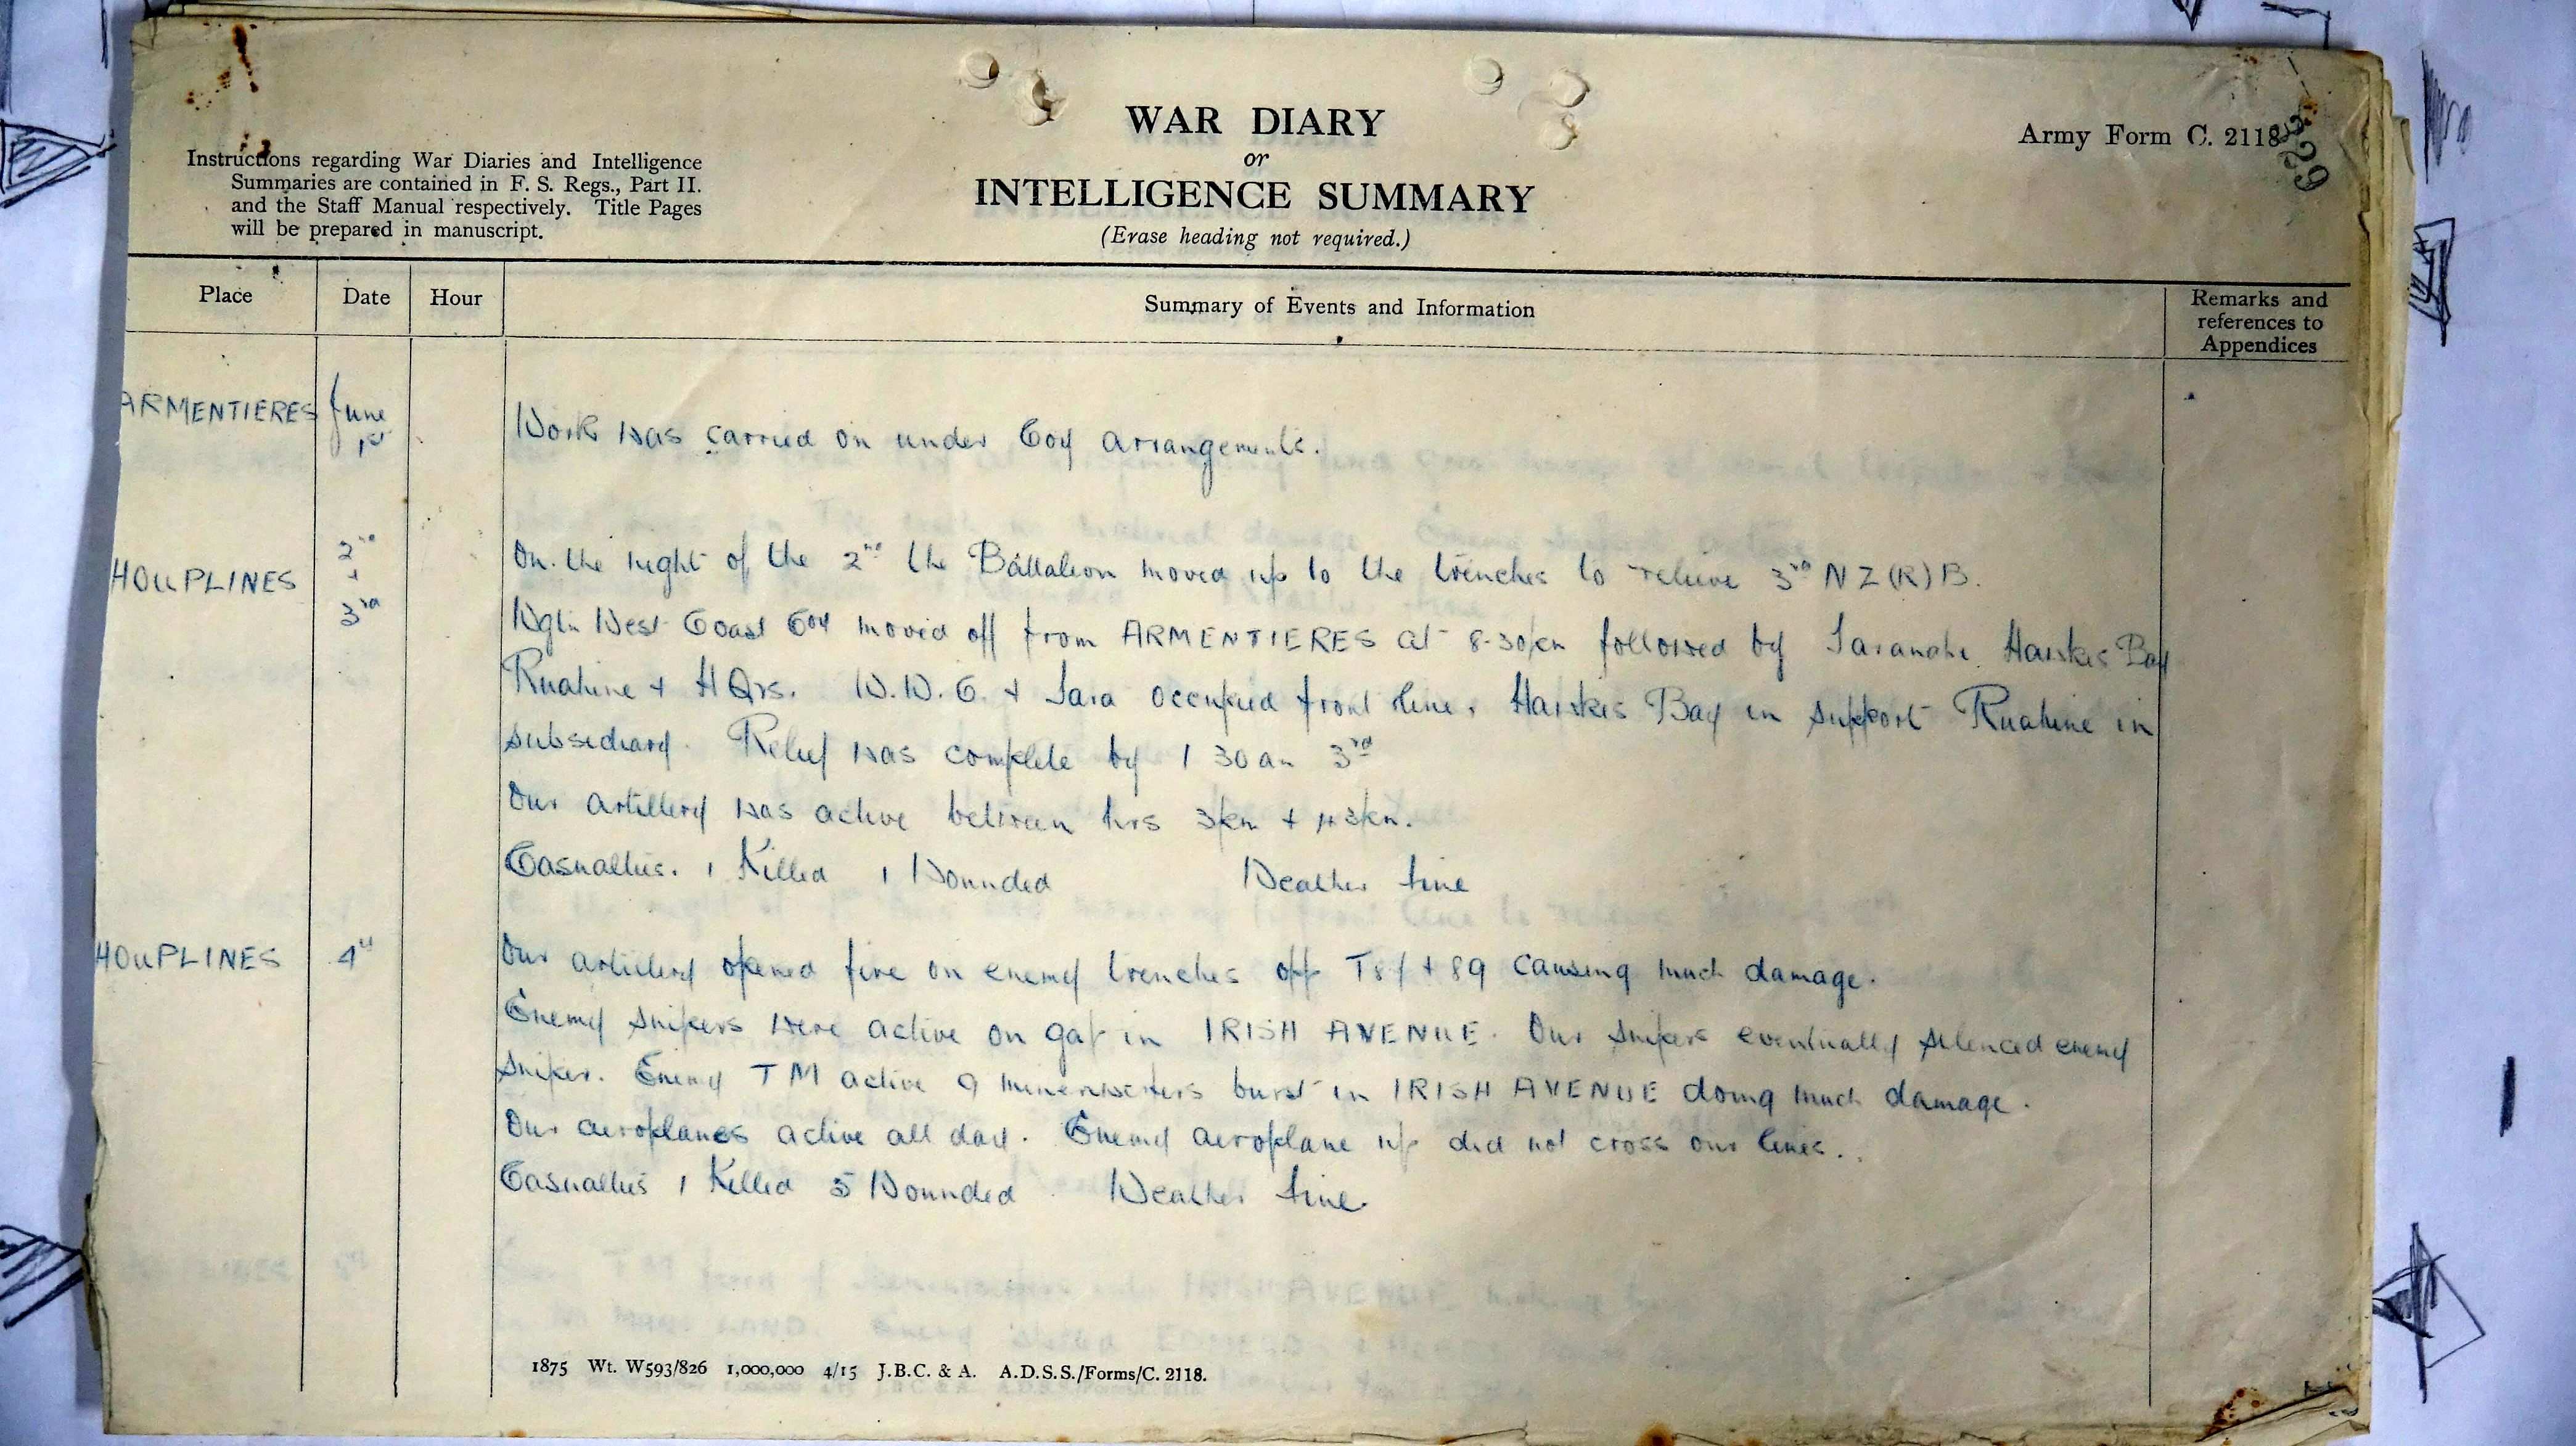 WAR DIARY
or
INTELLIGENCE SUMMARY
(Erase heading not required.)
Instructions regarding War Diaries and Intelligence
Summaries are contained in F. S. Regs., Part II.
and the Staff Manual respectively. Title Pages
will be prepared in manuscript.
Army Form C. 2118
329
Place
Date
Hour
Summary of Events and Information
Remarks and
references to
Appendices
ARMENTIERES June 1st Work was carried on under Coy arrangements.
HOUPLINES 2nd + 3rd On the night of the 2nd the Battalion moved up to the trenches to relieve 3rd NZ(R)B.
Wgtn West Coast Coy moved off from ARMENTIERES at 8-30pm followed by Taranaki Hawkes Bay
Ruahine + HQrs. W.W.C. + Tara occupied front line, Hawkes Bay in support Ruahine in
subsidiary. Relief was complete by 1 30 am 3rd
Our artillery was active between hrs 3pm +
Casualties. 1 Killed 1 Wounded Weather fine
HOUPLINES 4th Our artillery opened fire on enemy trenches opp + 89 causing much damage.
Enemy snipers were active on gap in IRISH AVENUE. Our snipers eventually silenced enemy
sniper. Enemy TM active 9 minenwerfers burst in IRISH AVENUE doing much damage.
Our aeroplanes active all day. Enemy aeroplane up did not cross our lines.
Casualties 1 Killed 5 Wounded Weather fine.
1875 Wt. W593/826 1,000,000 4/15 J.B.C. & A. A.D.S.S./Forms/C. 2118.